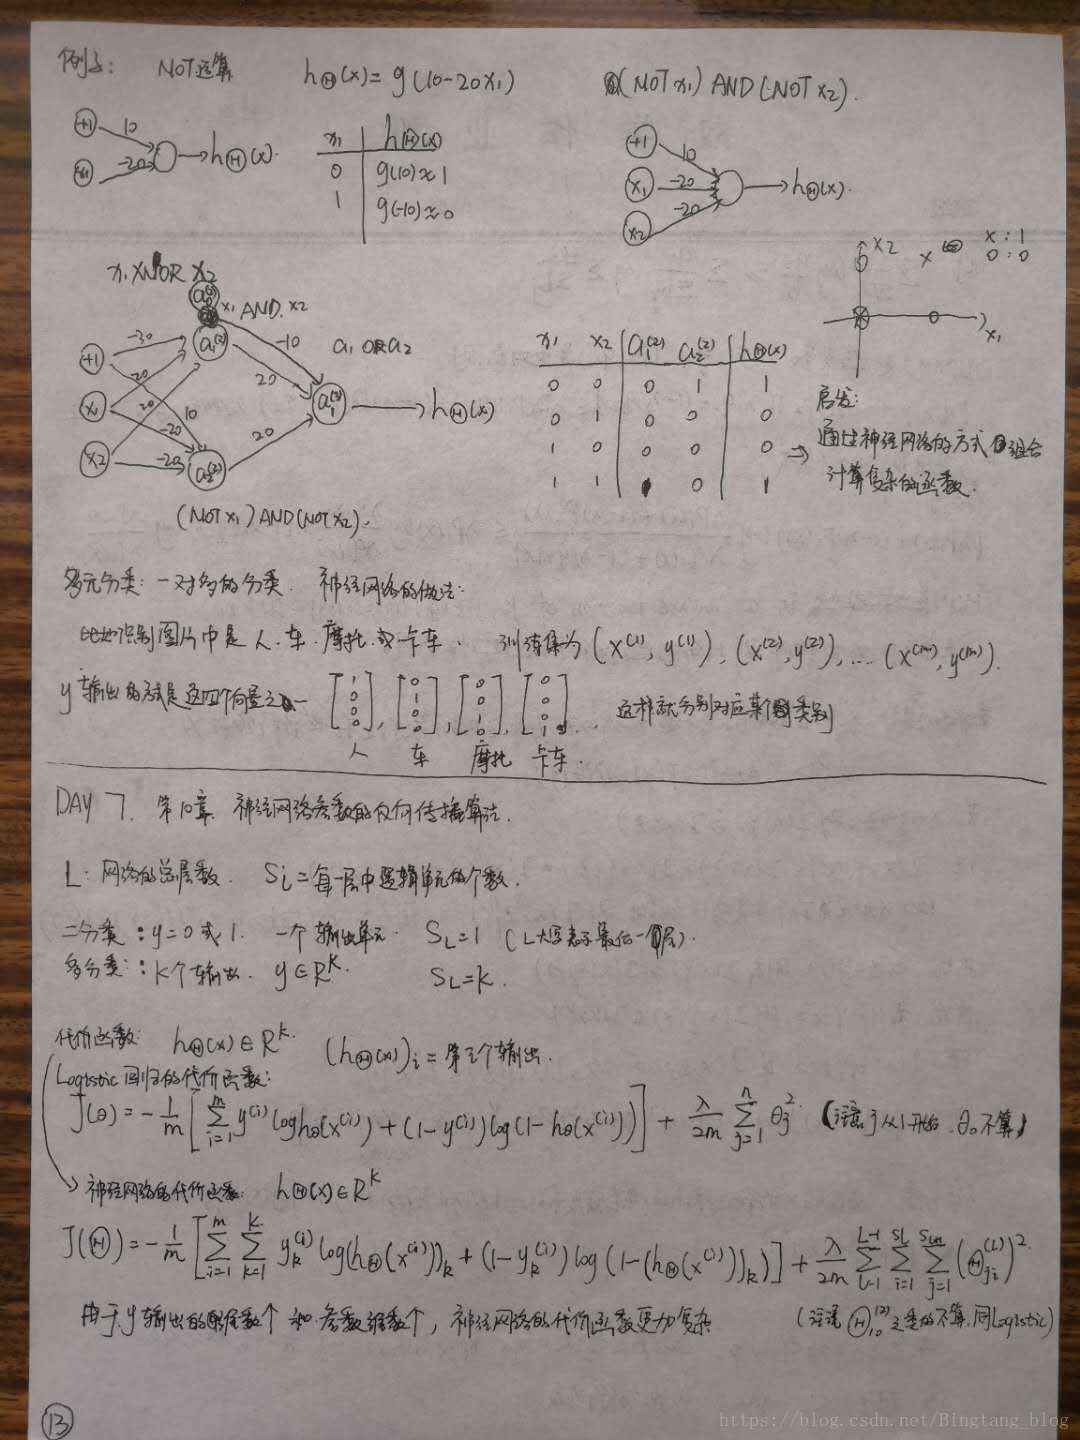 例子: NOT运算 hΘ(x)= g(10-20x₁) (NOT x₁) AND (NOT x₂).
+1 10
x₁ -20 → hΘ(x).
x₁ hΘ(x)
0 g(10)≈1
1 g(-10)≈0
+1 10
x₁ -20 → hΘ(x).
x₂ -20
x₁ XNOR x₂
x₁ AND x₂
+1 -30 a₁⁽²⁾ -10 a₁ OR a₂
x₁ 20 20 10 20 a₁⁽³⁾ → hΘ(x)
x₂ -20 -20 a₂⁽²⁾ 20
(NOT x₁) AND (NOT x₂).
x₁ x₂ a₁⁽²⁾ a₂⁽²⁾ hΘ(x)
0 0 0 1 1
0 1 0 0 0
1 0 0 0 0
1 1 1 0 1
x₂ x x : 1
o : 0
x₁
启发:
⇒ 通过神经网络的方式组合
计算复杂的函数.
多元分类: 一对多的分类. 神经网络的做法:
比如识别图片中是人.车.摩托.或卡车. 训练集为 (x⁽¹⁾, y⁽¹⁾), (x⁽²⁾, y⁽²⁾), ... (x⁽ᵐ⁾, y⁽ᵐ⁾).
y输出的方式是这四个向量之一 [1 0 0 0], [0 1 0 0], [0 0 1 0], [0 0 0 1]. 这样就分别对应某个类别
人 车 摩托 卡车.
DAY 7. 第10章. 神经网络参数的反向传播算法.
L: 网络的总层数. Sₗ=每一层中逻辑单元的个数.
二分类: y=0或1. 一个输出单元. S_L=1 (L大写表示最后一层).
多分类: K个输出. y∈Rᴷ. S_L=K.
代价函数: hΘ(x)∈Rᴷ. (hΘ(x))ᵢ = 第i个输出.
Logistic 回归的代价函数:
J(θ) = -1/m [∑_{i=1}^{m} y⁽ⁱ⁾ log hθ(x⁽ⁱ⁾) + (1-y⁽ⁱ⁾) log(1-hθ(x⁽ⁱ⁾))] + λ/2m ∑_{j=1}^{n} θⱼ². (注意j从1开始. θ₀不算)
神经网络的代价函数: hΘ(x)∈Rᴷ
J(Θ) = -1/m [∑_{i=1}^{m} ∑_{k=1}^{K} yₖ⁽ⁱ⁾ log(hΘ(x⁽ⁱ⁾))ₖ + (1-yₖ⁽ⁱ⁾) log(1-(hΘ(x⁽ⁱ⁾))ₖ)] + λ/2m ∑_{l=1}^{L-1} ∑_{i=1}^{Sl} ∑_{j=1}^{Sl+1} (Θⱼᵢ⁽ˡ⁾)².
由于y输出的维数个和参数维数个, 神经网络的代价函数更加复杂 (注意Θ₁₀⁽²⁾之类的不算. 同Logistic)
13
https://blog.csdn.net/Bingtang_blog